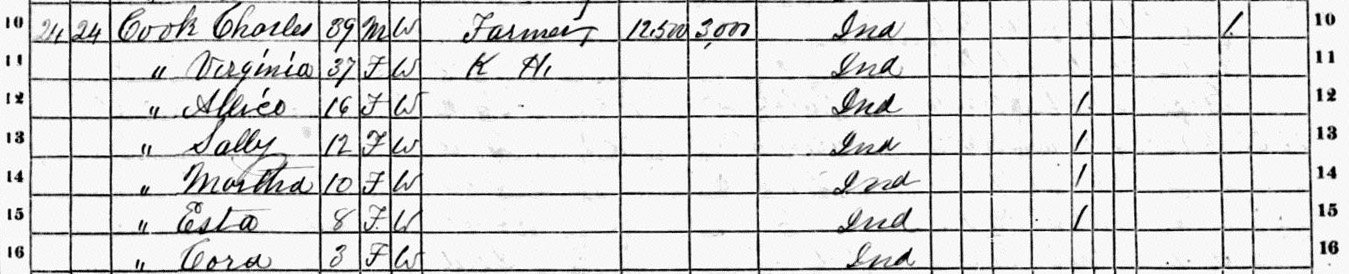 10 24 24 Cook Charles 39 M W Farmer 12,500 3,000 Ind 1 10
11 " Virginia 37 F W K H. Ind 11
12 " Allico 16 F W Ind 1 12
13 " Sally 12 F W Ind 1 13
14 " Martha 10 F W Ind 1 14
15 " Esta 8 F W Ind 1 15
16 " Cora 3 F W Ind 16